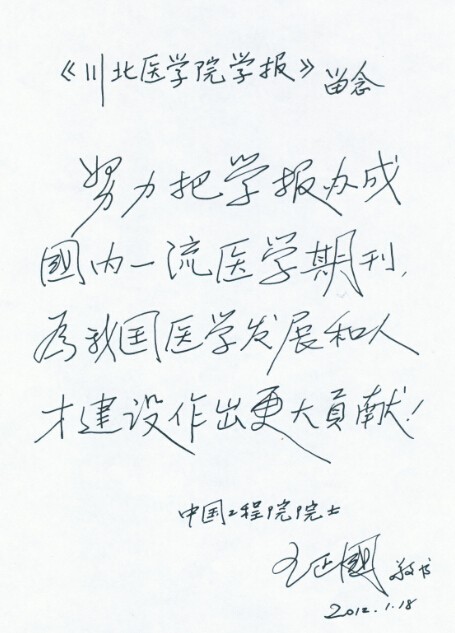 《川北医学院学报》留念
努力把学报办成
國内一流医学期刊,
为我国医学发展和人
才建设作出更大貢献!
中国工程院院士
王正國 敬书
2012.1.18